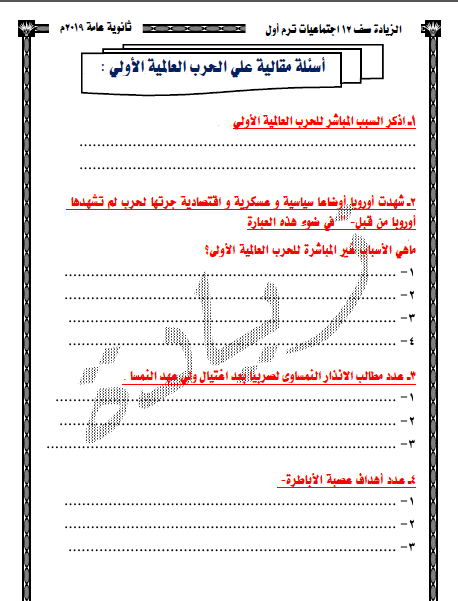 الزيادة سف ١٢ اجتماعيات ترم أول
ثانوية عامة ٢٠١٩م
أسئلة مقالية علي الحرب العالمية الأولي :
١ـ اذكر السبب المباشر للحرب العالمية الأولي
................................................................
................................................................
٢ـ شهدت أوروبا أوضاعا سياسية و عسكرية و اقتصادية جرتها لحرب لم تشهدها
أوروبا من قبل- " في ضوء هذه العبارة
ماهي الأسباب غير المباشرة للحرب العالمية الأولى؟
١- ................................................................
٢- ................................................................
٣- ................................................................
٤- ................................................................
٣ـ عدد مطالب الانذار النمساوى لصربيا بعد اغتيال ولي عهد النمسا .
١- ................................................................
٢- ................................................................
٣- ................................................................
٤ـ عدد أهداف عصبة الأباطرة-
١- ................................................................
٢- ................................................................
٣- ................................................................
ريادة